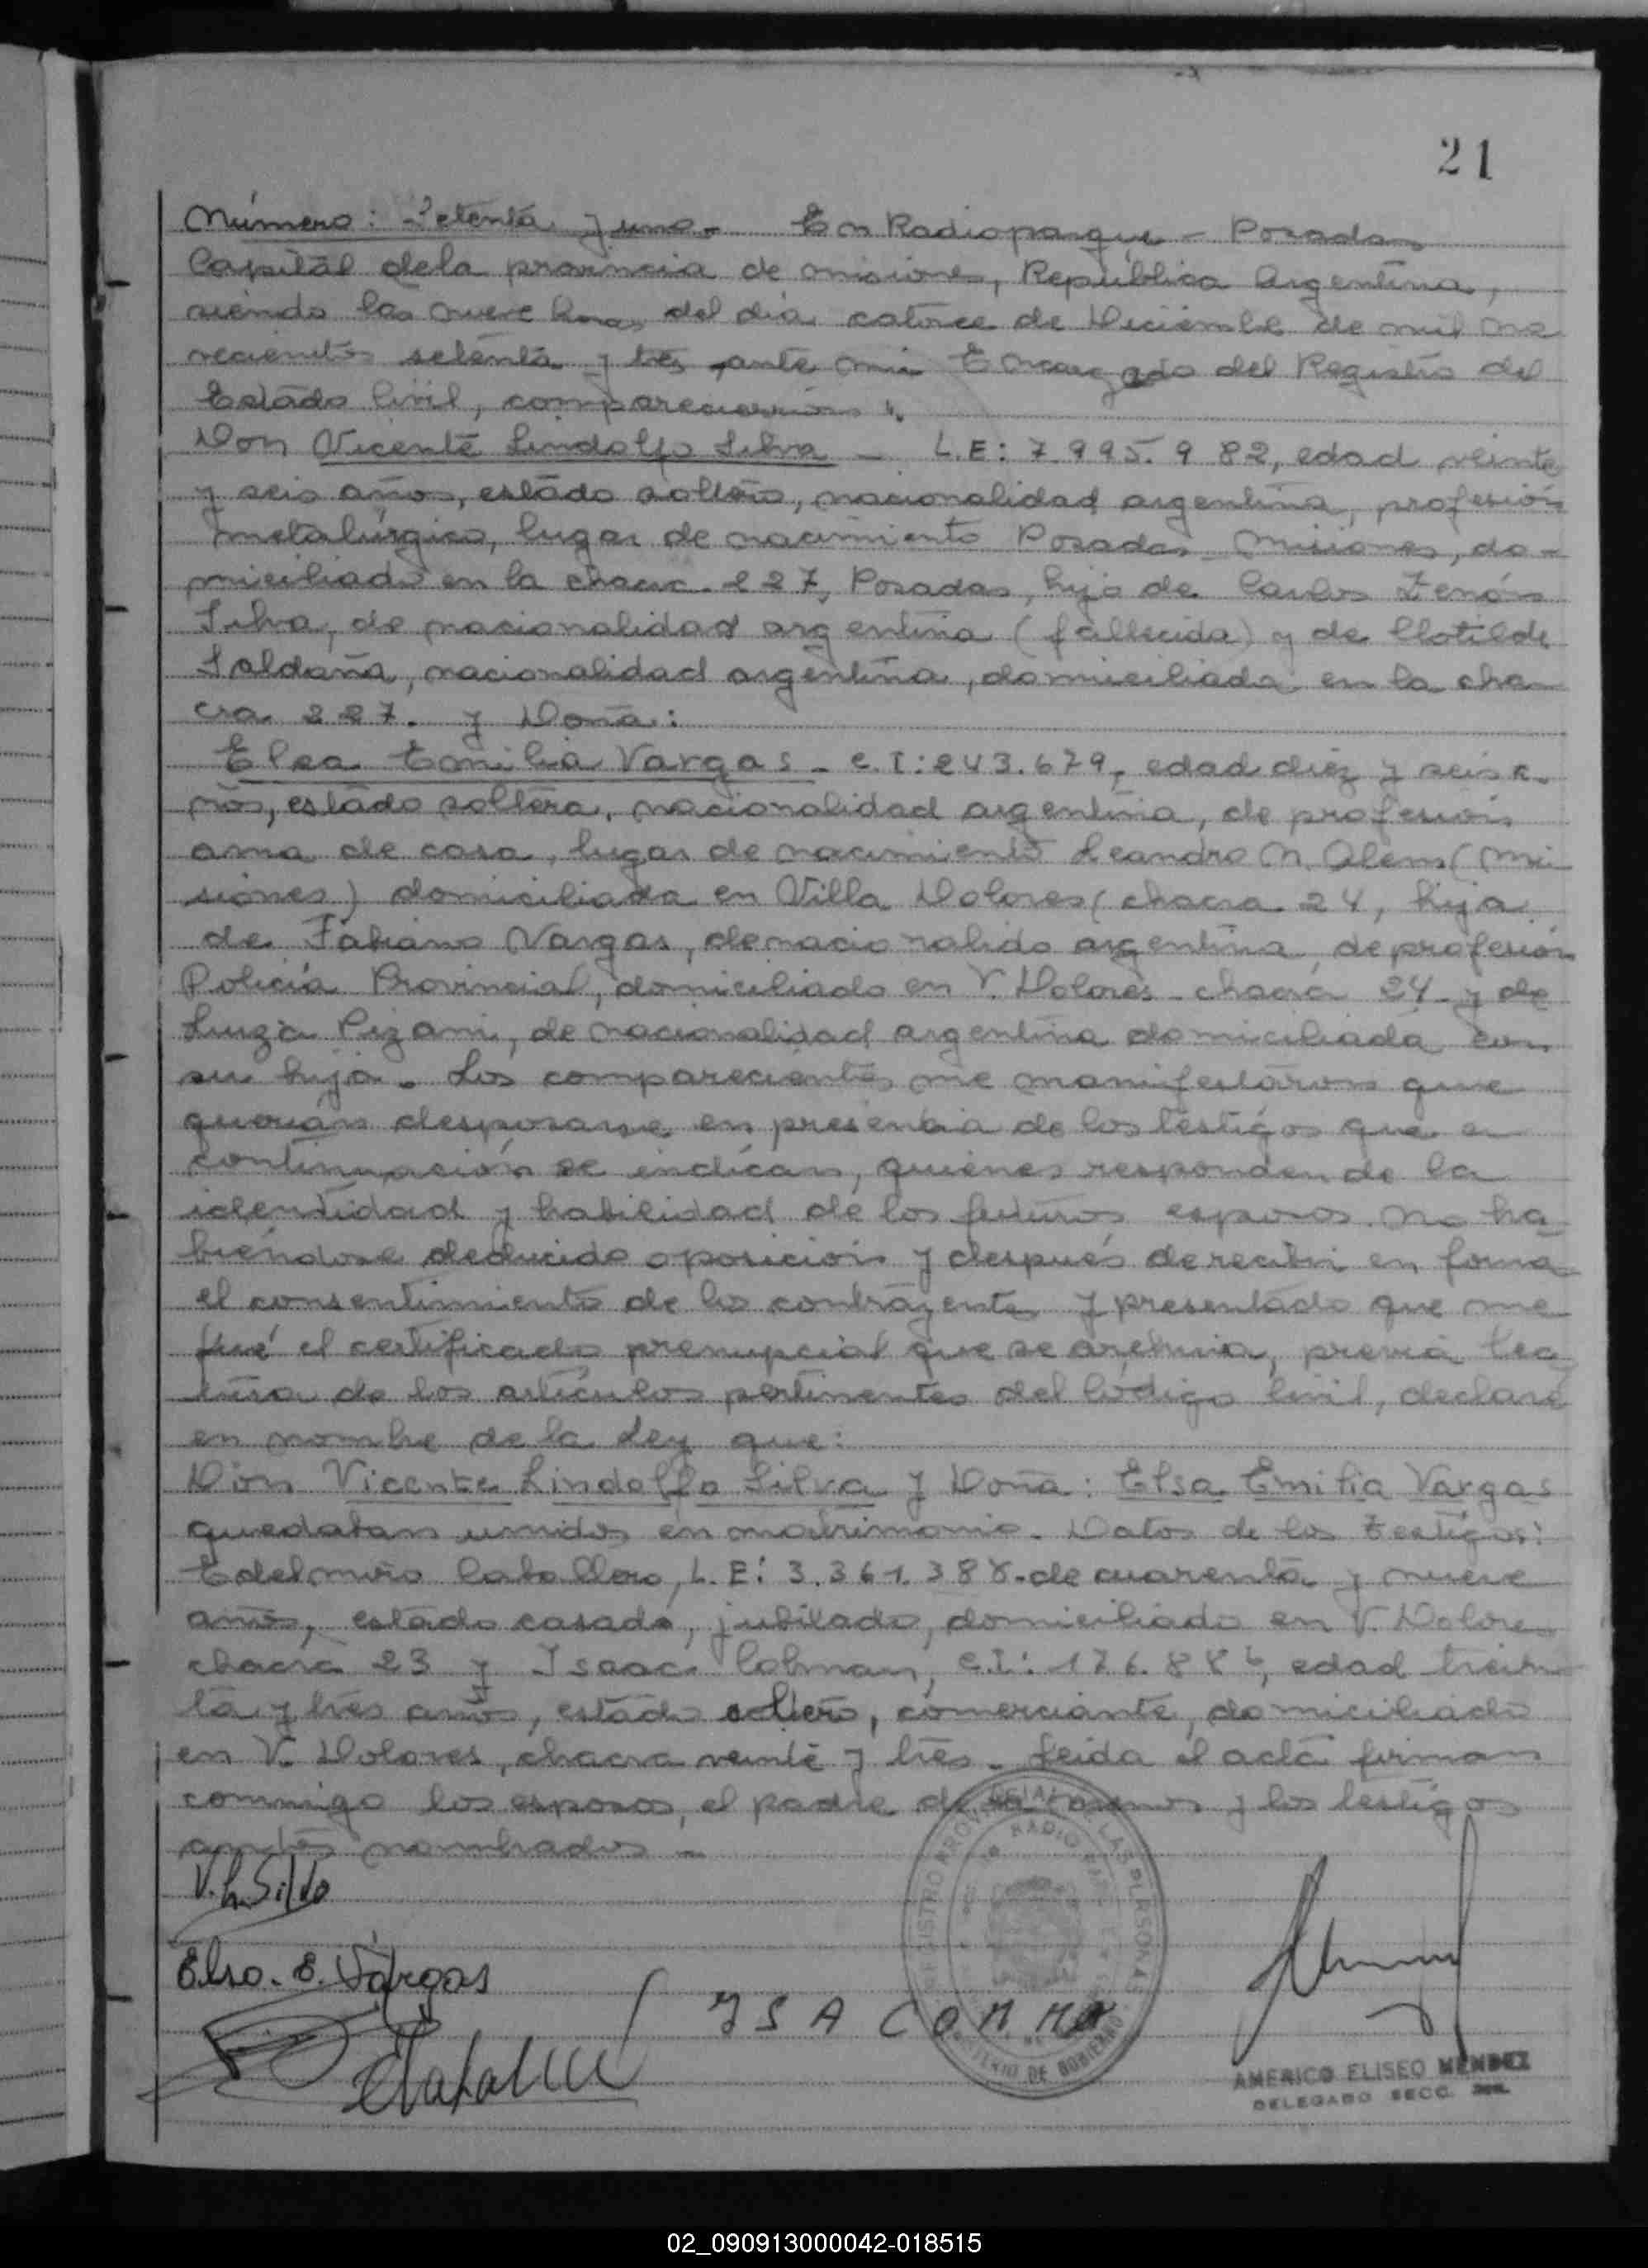 21
Número: Setenta y uno.- En Radioparque - Posadas
Capital dela provincia de misiones, República Argentina,
siendo las nueve horas del día catorce de Diciembre de mil no
vecientos setenta y tres, ante mi Encargado del Registro del
Estado Civil, comparecieron:
Don Vicente Lindolfo Silva - L.E: 7.995.982, edad veinte
y seis años, estado soltero, nacionalidad argentina, profesión
metalúrgico, lugar de nacimiento Posadas - Misiones, do-
miciliado en la chacr. 227, Posadas, hijo de Carlos Zenón
Silva, de nacionalidad argentina (fallecida) y de Clotilde
Saldaña, nacionalidad argentina, domiciliada en la cha-
cra 227. y Doña:
Elsa Emilia Vargas - C.I: 243.679, edad diez y seis a-
ños, estado soltera, nacionalidad argentina, de profesión
ama de casa, lugar de nacimiento Leandro N. Alem (Mi
siones) domiciliada en Villa Dolores (chacra 24, hija
de Fabiano Vargas, denacionalido argentina, de profesión
Policía Provincial, domiciliado en V. Dolores - chacra 24 - y de
Luiza Pizani, de nacionalidad argentina domiciliada con
su hija. Los comparecientes me manifestaron que
querían desposarse en presencia de los testigos que a
continuación se indican, quienes responden de la
identidad y habilidad de los futuros esposos. No ha-
biéndose deducido oposición y después de recibir en forma
el consentimiento de los contrayentes y presentado que me
fué el certificado prenupcial que se archiva, previa lec
tura de los artículos pertinentes del Código Civil, declaré
en nombre de la Ley que:
Don Vicente Lindolfo Silva y Doña: Elsa Emilia Vargas
quedaban unidos en matrimonio. Datos de los Testigos:
Edelmiro Caballero, L.E: 3.361.388. de cuarenta y nueve
años, estado casado, jubilado, domiciliado en V. Dolores
chacra 23 y Isaac Colman, C.I: 176.886, edad trein-
ta y tres años, estado soltero, comerciante, domiciliado
en V. Dolores, chacra veinte y tres. Leida el acta firman
conmigo los esposos, el padre de la menos y los testigos
nombrados -
V.L. Silva
Elsa. E. Vargas
ISA CONMA
REGISTRO PROVINCIAL DE LAS PERSONAS
RADIO
MINISTERIO DE GOBIERNO
AMERICO ELISEO MENDEZ
DELEGADO SECC.
02_090913000042-018515